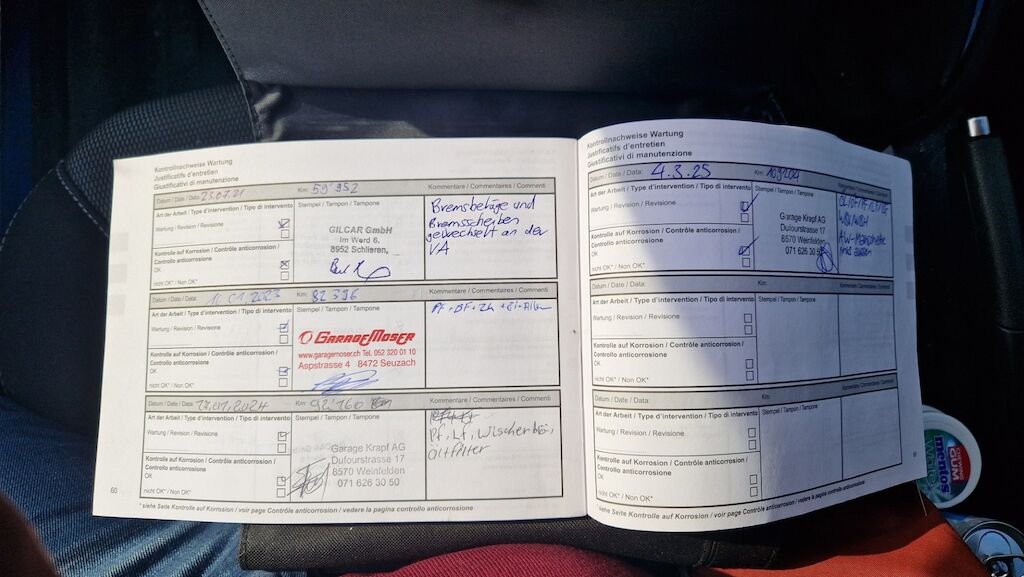 Kontrollnachweise Wartung
Justificatifs d'entretien
Giustificativi di manutenzione
Datum / Date / Data: 23.07.21 Km: 59'952 Kommentare / Commentaires / Commenti
Art der Arbeit / Type d'intervention / Tipo di intervento Stempel / Tampon / Tampone
Wartung / Revision / Revisione
Kontrolle auf Korrosion / Contrôle anticorrosion /
Controllo anticorrosione
OK
nicht OK* / Non OK*
GILCAR GmbH
Im Werd 6,
8952 Schlieren,
Bremsbeläge und
Bremsscheiben
gewechselt an der
VA
Datum / Date / Data: 16.01.2023 Km: 82 396 Kommentare / Commentaires / Commenti
Art der Arbeit / Type d'intervention / Tipo di intervento Stempel / Tampon / Tampone
Wartung / Revision / Revisione
Kontrolle auf Korrosion / Contrôle anticorrosion /
Controllo anticorrosione
OK
nicht OK* / Non OK*
GARAGEMOSER
www.garagemoser.ch Tel. 052 320 01 10
Aspstrasse 4 8472 Seuzach
Datum / Date / Data: 17.01.2024 Km: 92'160 Km Kommentare / Commentaires / Commenti
Art der Arbeit / Type d'intervention / Tipo di intervento Stempel / Tampon / Tampone
Wartung / Revision / Revisione
Kontrolle auf Korrosion / Contrôle anticorrosion /
Controllo anticorrosione
OK
nicht OK* / Non OK*
Garage Krapf AG
Dufourstrasse 17
8570 Weinfelden
071 626 30 50
Pf, Lf, Wischer
Ölfilter
60
* siehe Seite Kontrolle auf Korrosion / voir page Contrôle anticorrosion / vedere la pagina controllo anticorrosione
Kontrollnachweise Wartung
Justificatifs d'entretien
Giustificativi di manutenzione
Datum / Date / Data: 4.3.25 Km: Kommentare / Commentaires / Commenti
Art der Arbeit / Type d'intervention / Tipo di intervento Stempel / Tampon / Tampone
Wartung / Revision / Revisione
Kontrolle auf Korrosion / Contrôle anticorrosion /
Controllo anticorrosione
OK
nicht OK* / Non OK*
Garage Krapf AG
Dufourstrasse 17
8570 Weinfelden
071 626 30 50
Datum / Date / Data: Km: Kommentare / Commentaires / Commenti
Art der Arbeit / Type d'intervention / Tipo di intervento Stempel / Tampon / Tampone
Wartung / Revision / Revisione
Kontrolle auf Korrosion / Contrôle anticorrosion /
Controllo anticorrosione
OK
nicht OK* / Non OK*
Datum / Date / Data: Km: Kommentare / Commentaires / Commenti
Art der Arbeit / Type d'intervention / Tipo di intervento Stempel / Tampon / Tampone
Wartung / Revision / Revisione
Kontrolle auf Korrosion / Contrôle anticorrosion /
Controllo anticorrosione
OK
nicht OK* / Non OK*
* siehe Seite Kontrolle auf Korrosion / voir page Contrôle anticorrosion / vedere la pagina controllo anticorrosione
GUM
mentos